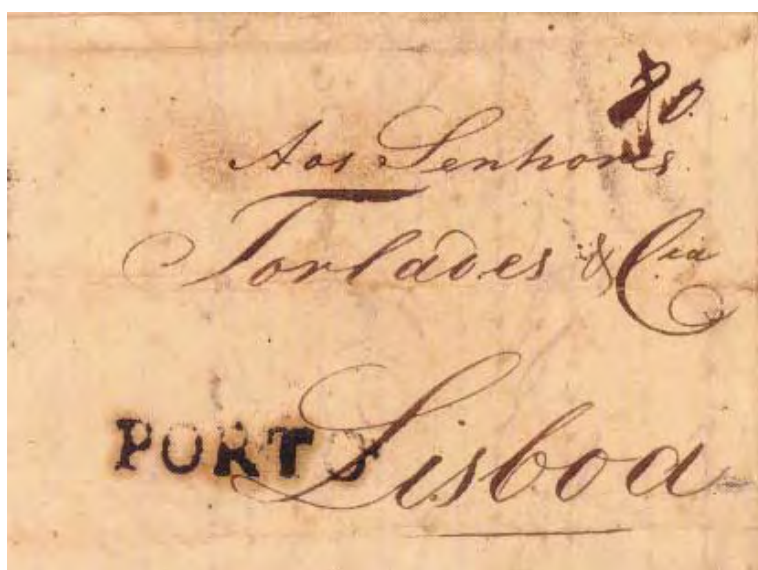 80.
Aos Senhores
Torlades & Cia
PORTO Lisboa